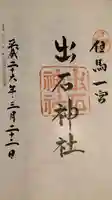 但馬一宮
出石神社
平成二十六年三月二十二日